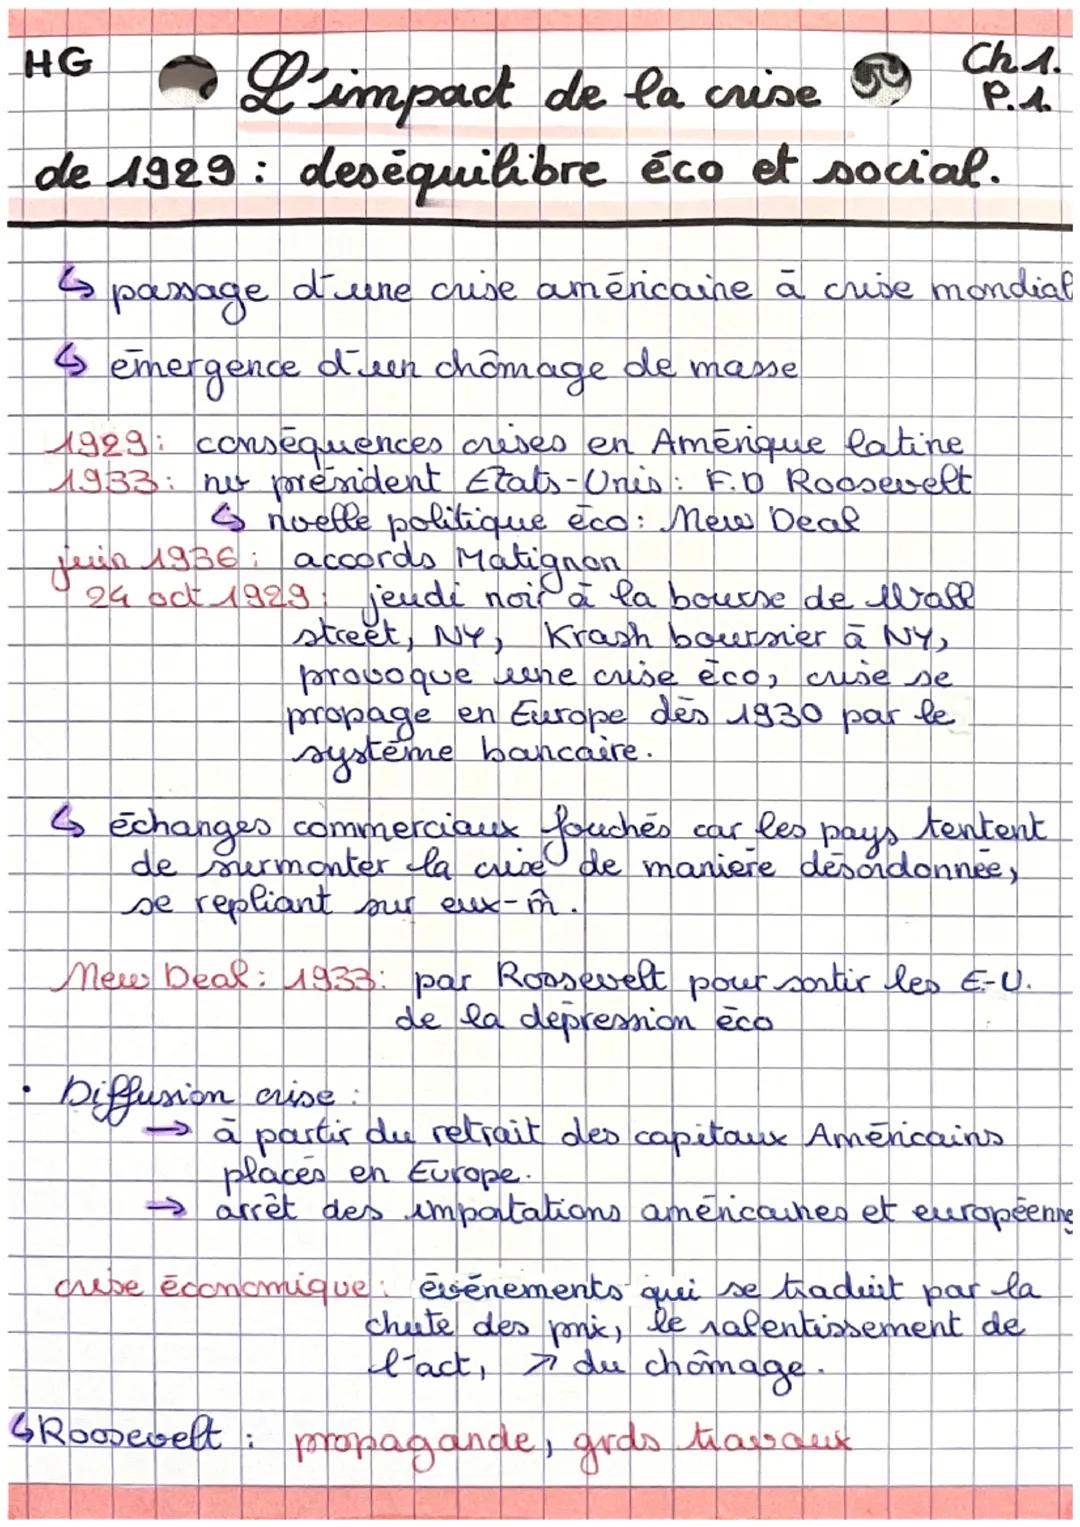 HG
Ch 1.
P.1.
L'impact de la crise
de 1929 : deséquilibre éco et social.
↳ passage d'une crise américaine à crise mondial
↳ émergence d'un chômage de masse
1929 : conséquences crises en Amérique latine
1933 : nv président Etats-Unis : F.D Roosevelt
↳ nvelle politique éco : New Deal
juin 1936 : accords Matignon
24 oct 1929 : jeudi noir à la bourse de Wall
street, NY, Krash boursier à NY,
provoque une crise éco, crise se
propage en Europe dès 1930 par le
système bancaire.
↳ échanges commerciaux touchés car les pays tentent
de surmonter la crise de manière désordonnée,
se repliant sur eux-m̂.
New Deal : 1933 : par Roosevelt pour sortir les E-U.
de la dépression éco
• Diffusion crise :
→ à partir du retrait des capitaux Américains
placés en Europe.
→ arrêt des importations américaines et européenne
crise économique : événements qui se traduit par la
chute des prix, le ralentissement de
l'act, ↗ du chômage.
↳ Roosevelt : propagande, grds travaux